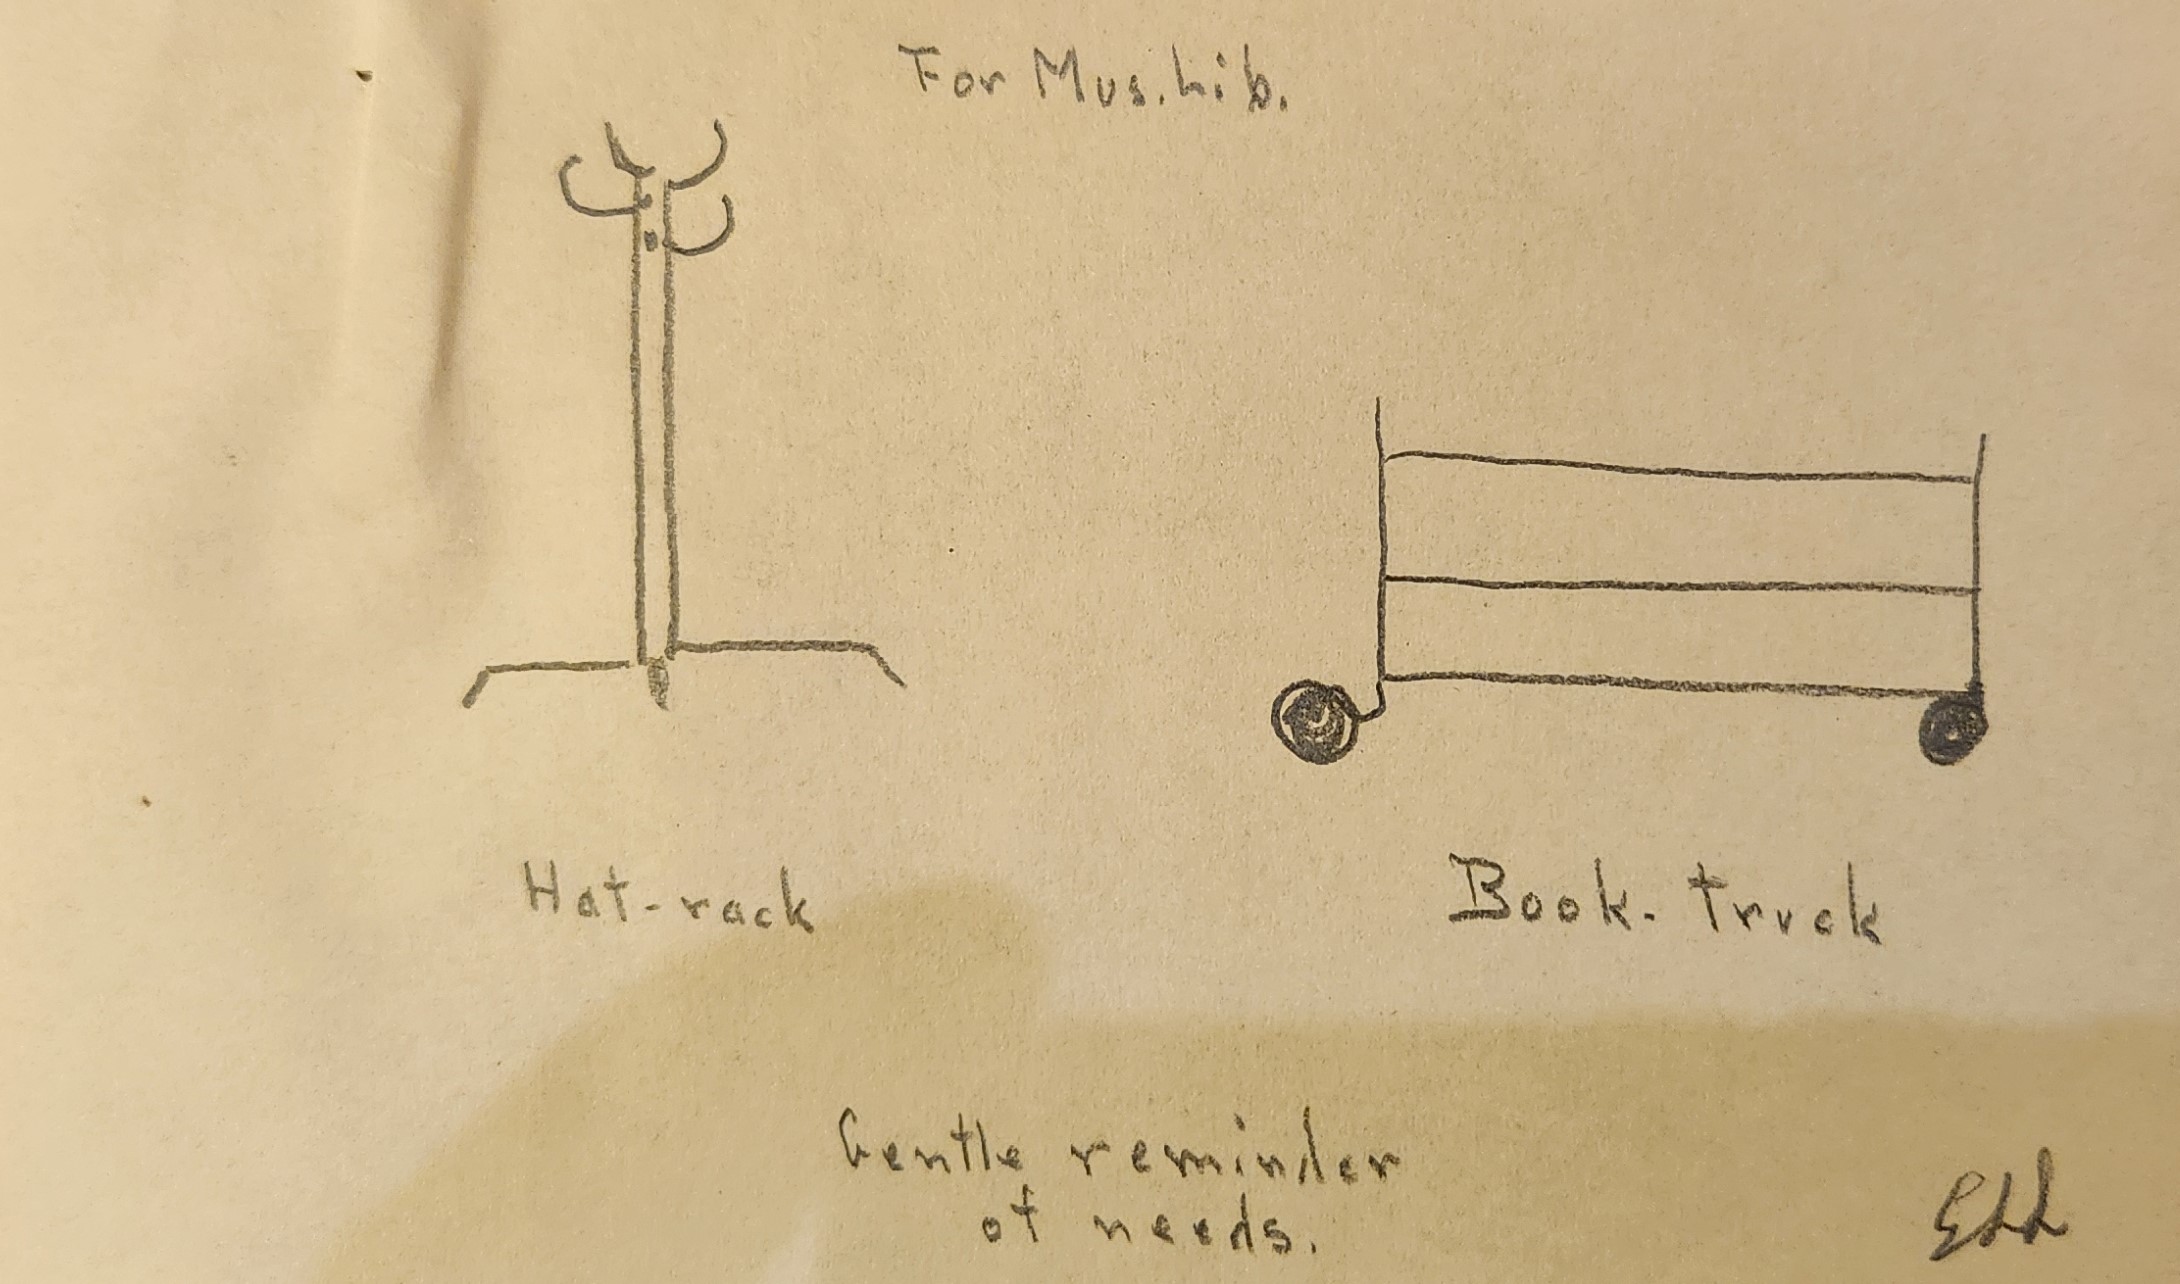 For Mus. Lib.
Hat-rack
Book-truck
Gentle reminder
of needs.